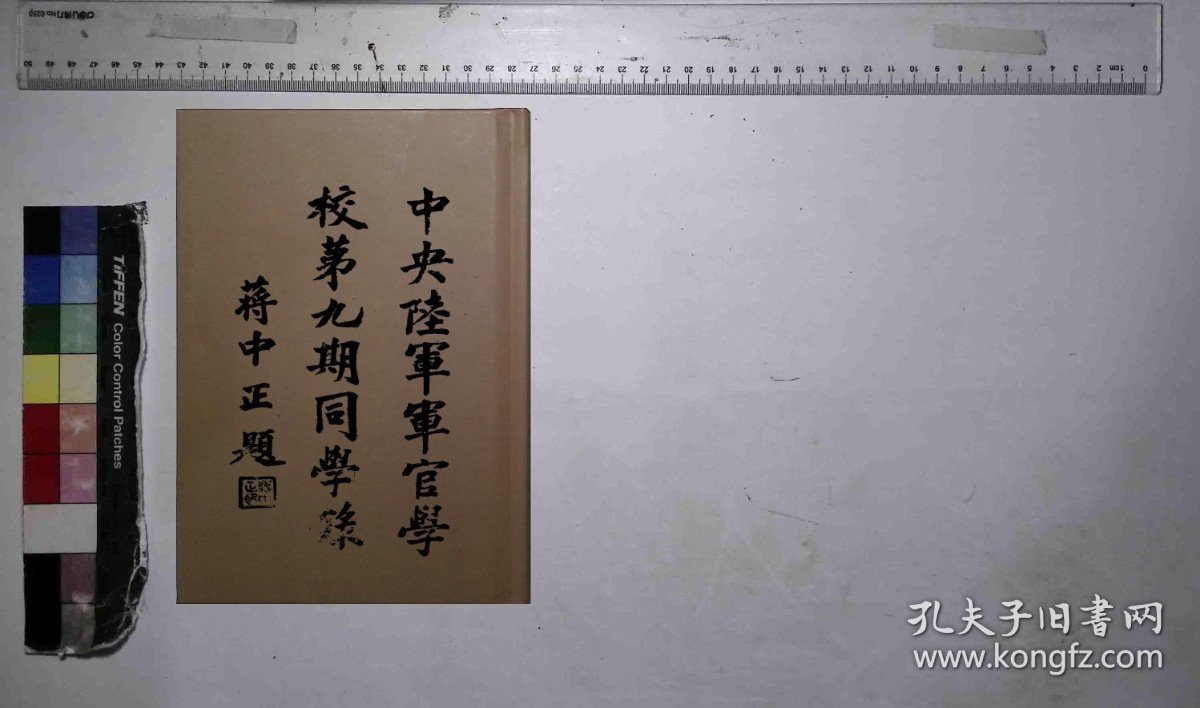 deli No.6250
0 1cm 2 3 4 5 6 7 8 9 10 11 12 13 14 15 16 17 18 19 20 21 22 23 24 25 26 27 28 29 30 31 32 33 34 35 36 37 38 39 40 41 42 43 44 45 46 47 48 49 50
中央陸軍軍官學
校第九期同學錄
蔣中正題
TIFFEN Color Control Patches
孔夫子旧書网
www.kongfz.com